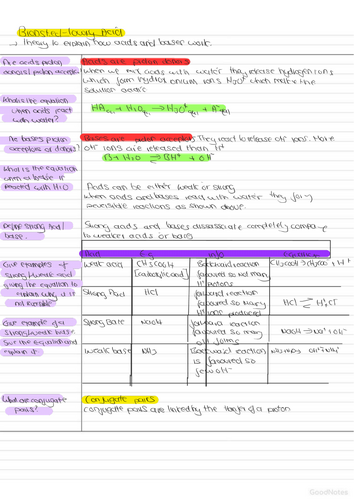 Bronsted-lowry Acid
→ Theory to explain how acids and bases work.
Are acids proton
donors/proton acceptors
Acids are proton donors
when u mix acids with water they release hydrogen ions
which form hydroxonium ions H3O+ which makes the
solution acidic
What is the equation
when acids react
with water?
HA(aq) + H2O(l) → H3O+(aq) + A-(aq)
As bases proton
acceptors or donors?
Bases are proton acceptors. They react to release OH- ions. More
OH- ions are released than H+
B + H2O ⇌ BH+ + OH-
What is the equation
when a base is
reacted with H2O
Acids can be either weak or strong
when acids and bases react with water they form
reversible reactions as shown above
Define strong acid/
base.
Strong acids and bases dissasociate completely compare
to weaker acids or bases
Acid
E.g
info
Equation
Give examples of
strong/weak acid
giving the equation to
explain why it is
not reversible
weak acid
CH3COOH
Backward reaction
favoured so not many
H+ protons
Strong Acid
HCl
forward reaction
favoured so many
H+ ions produced
HCl ⇌ H+ Cl-
Give example of a
strong/weak base
Give the equation and
explain it
Strong Base
NaOH
forward reaction
favoured so many
OH- forms
NaOH → Na+ + OH-
weak base
NH3
Backward reaction
is favoured so
few OH-
What are conjugate
pairs?
Conjugate pairs
conjugate pairs are linked by the transfer of a proton
GoodNotes